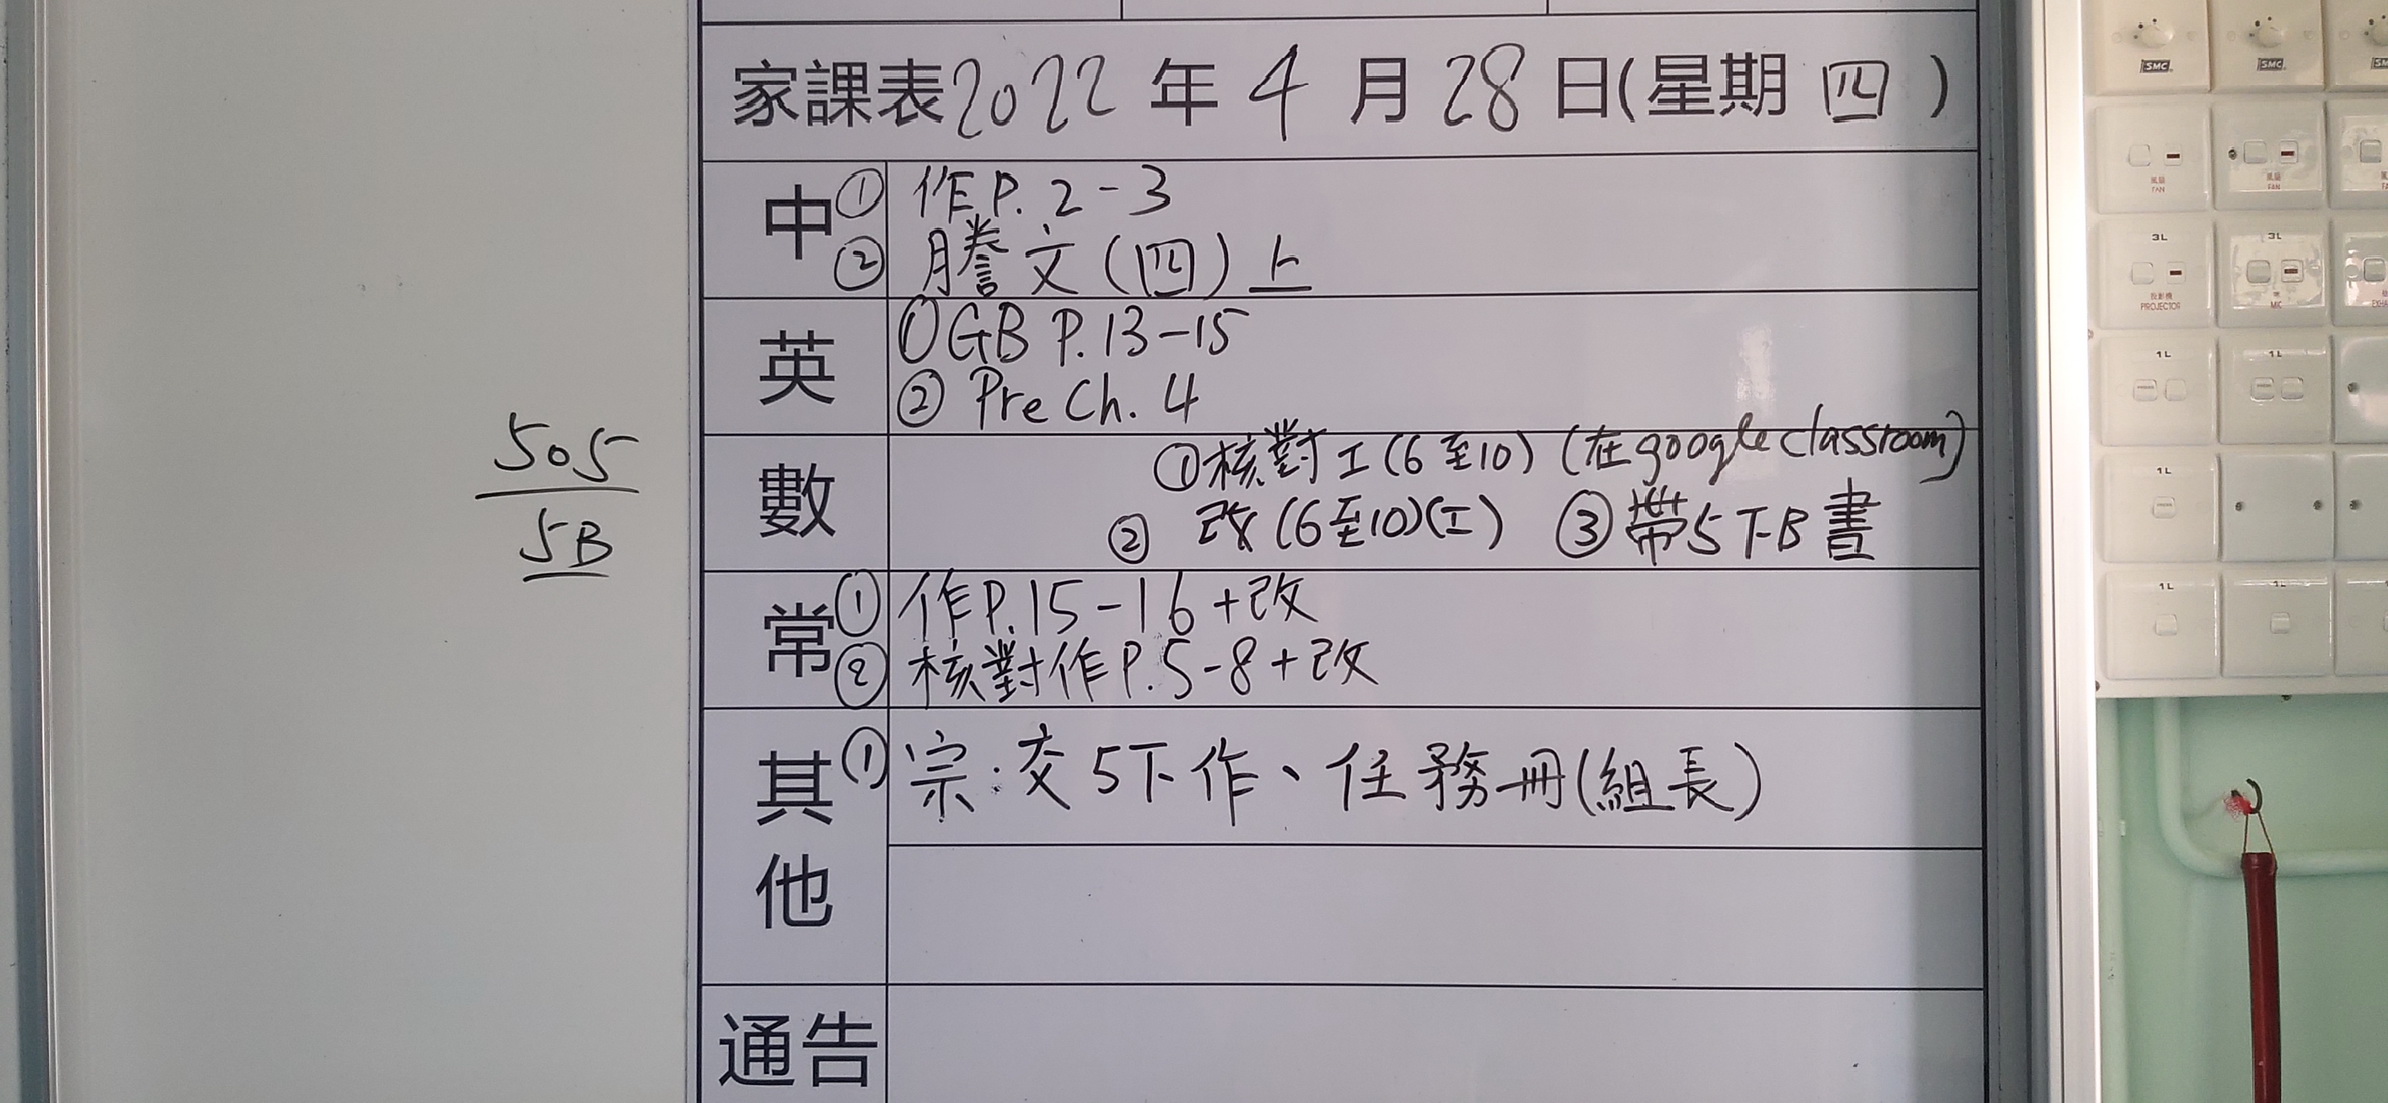 家課表2022年4月28日(星期四)
中
① 作P.2-3
② 謄文(四)上
英
① GB P.13-15
② Pre Ch. 4
數
①核對工(6至10)(在google classroom)
② 改(6至10)(工) ③帶5下B書
常
① 作P.15-16+改
② 核對作P.5-8+改
其他
① 宗:交5下作、任務冊(組長)
通告
505
5B
SMC
SMC
風扇
FAN
風扇
FAN
3L
3L
投影機
PROJECTOR
MIC
1L
1L
1L
1L
1L